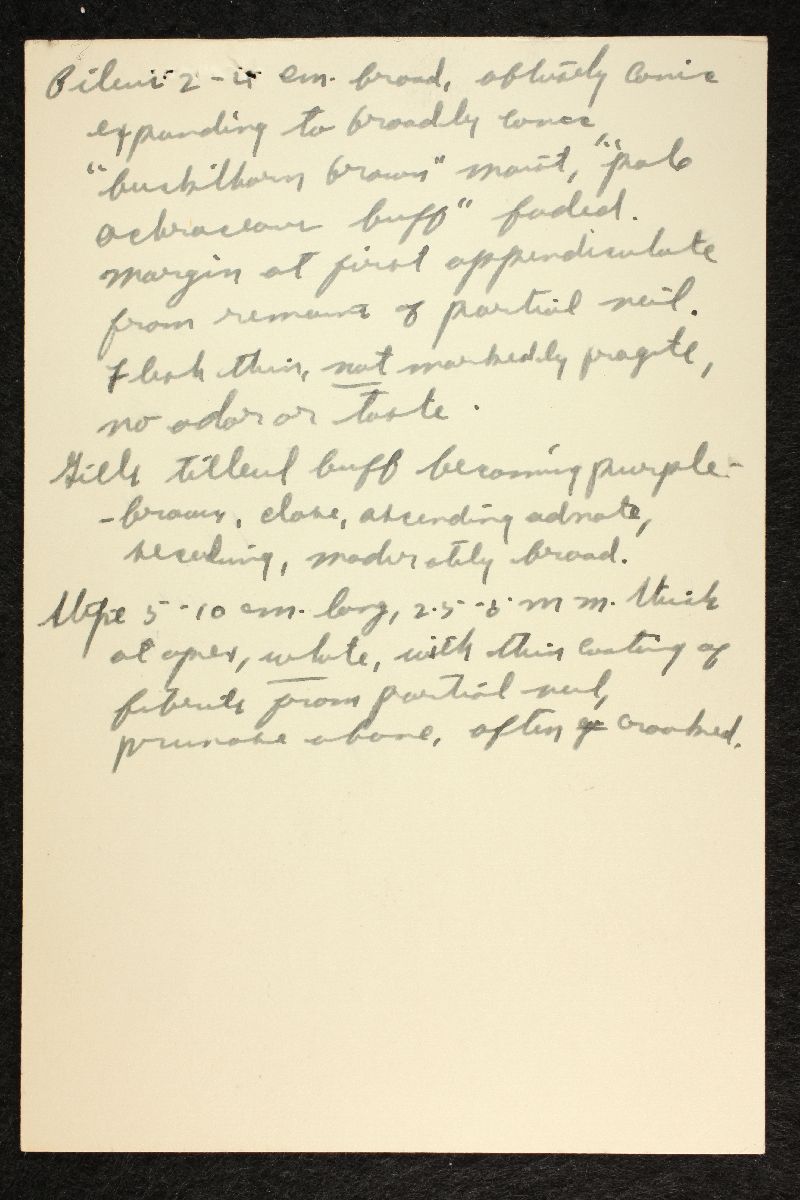 Pileus 2-4 cm. broad, obtusely conic
expanding to broadly conic
"buckthorn brown" moist, "pale
ochraceous buff" faded.
Margin at first appendiculate
from remains of partial veil.
Flesh thin, not markedly fragile,
no odor or taste.
Gills tilleul buff becoming purple-
-brown, close, ascending adnate,
seceding, moderately broad.
Stipe 5-10 cm. long, 2.5-5 mm. thick
at apex, white, with thin coating of
fibrils from partial veil,
pruinose above, often crooked.